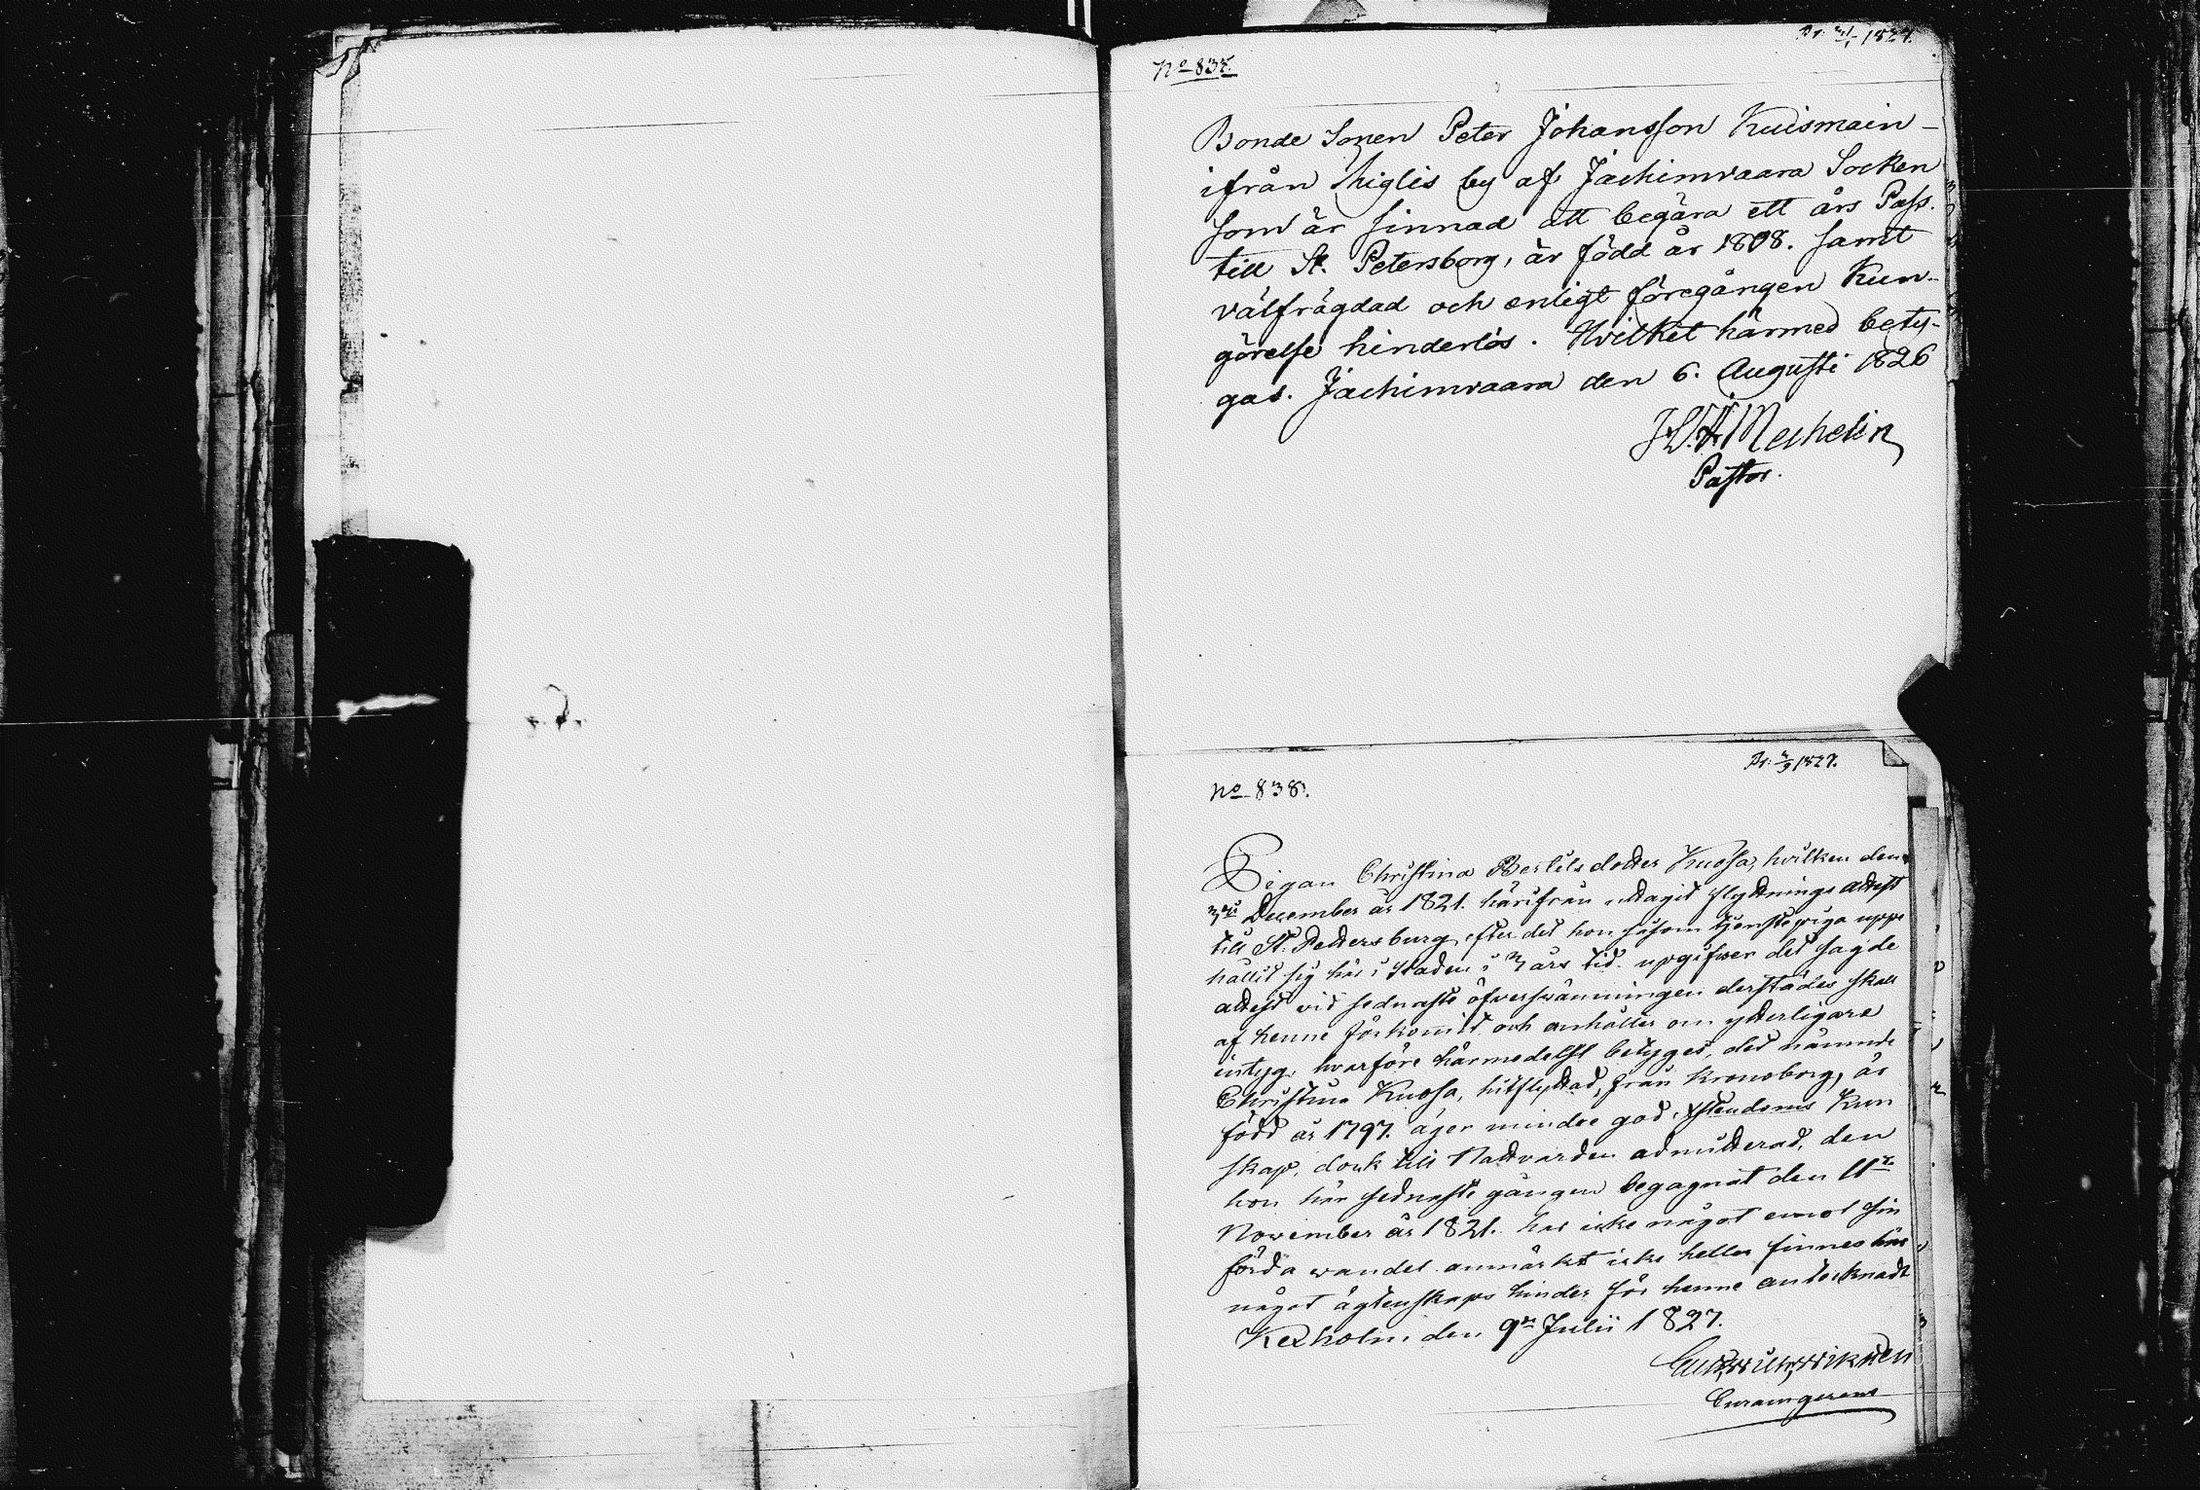 Pr. 21/1 1827.
No 837.
Bonde Sonen Peter Johansson Kuismain-
ifrån Miglis by af Jachimvaara Socken
som är sinnad att begära ett års Pass.
till St. Petersborg, är född år 1808. samt
välfrägdad och enligt föregången Kun-
görelse hinderlös. Hvilket härmed bety-
gas. Jachimvaara den 6. Augusti 1826
Mechelin
Pastor.
Pr. 2/9 1827.
No 838.
Pigan Christina Bertilsdotter Kuosa, hvilken den
December år 1821. härifrån uttagit flyttnings attest
till St. Pettersburg efter det hon såsom tjenstepiga uppe
hållit sig här i staden i 3 års tid. upgifwer det sagde
attest vid sednaste öfversvämningen derstädes skall
af henne förkommit och anhåller om ytterligare
intyg, hvarföre härmedelst betyges, det nämnde
Christina Kuosa, hitflyttad, från Kronoborg, är
född år 1797. äger mindre god Xstendoms Kun
skap, dock till Nattvarden admitterad, den
hon här sednaste gången begagnat den 11te
November år 1821. har icke något emot sin
förda wandel anmärkt icke heller finnes här
något ägtenskaps hinder för henne antecknadt
Kexholm den 9de Julii 1827.
Curamgerens